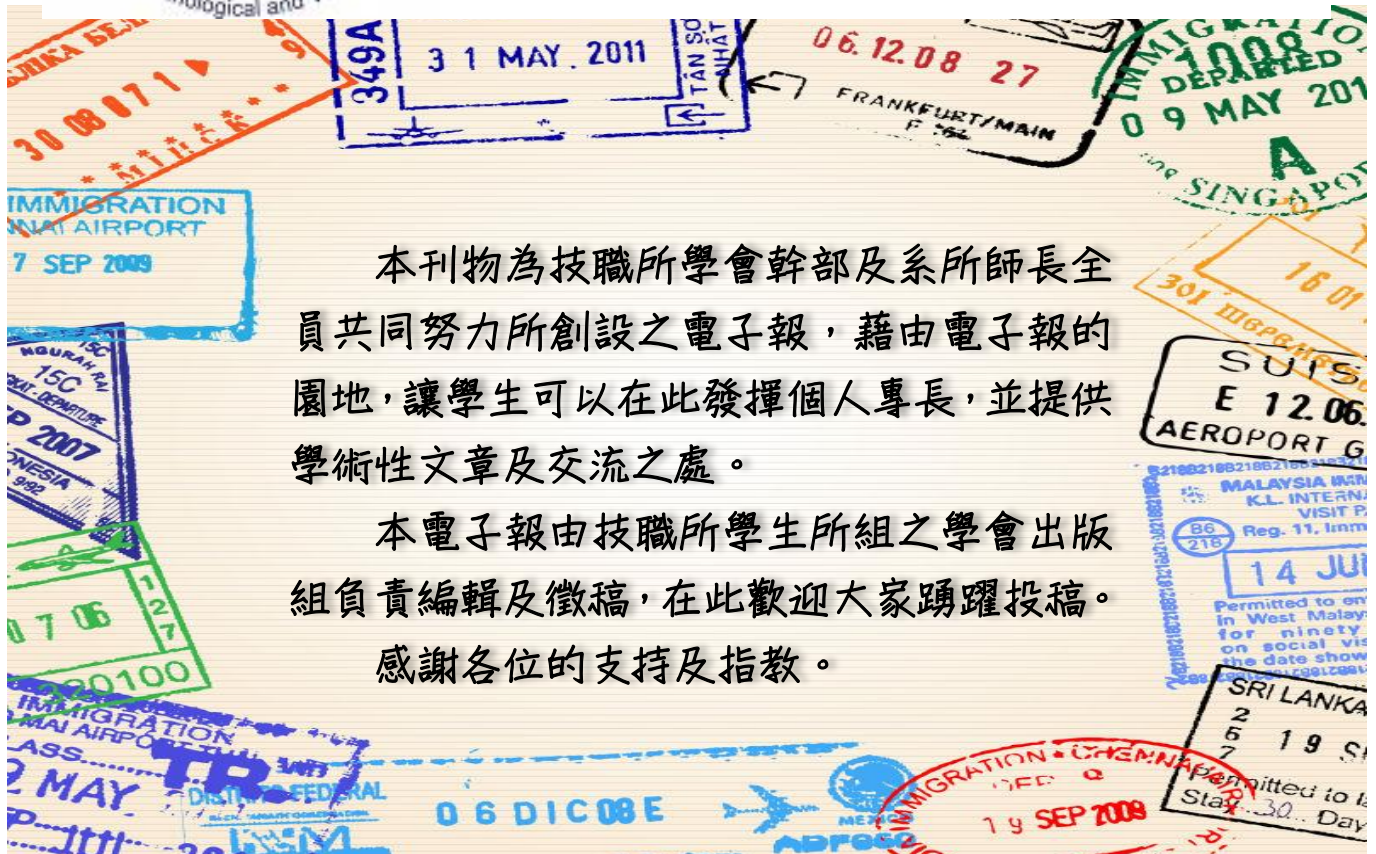 30 08 07 1
349A
3 1 MAY. 2011
TÂN SƠ
NHẤT
06.12.08 27
FRANKFURT/MAIN
DEPARTED
0 9 MAY 201
A
IMMIGRATION
AIRPORT
7 SEP 2009
本刊物為技職所學會幹部及系所師長全
員共同努力所創設之電子報，藉由電子報的
園地，讓學生可以在此發揮個人專長，並提供
學術性文章及交流之處。
本電子報由技職所學生所組之學會出版
組負責編輯及徵稿，在此歡迎大家踴躍投稿。
感謝各位的支持及指教。
301
16 01
SUIS
E 12.06.
AEROPORT G
MALAYSIA
K.L. INTERN
VISIT P
B6
218
Reg. 11, Imm
14 JU
Permitted to en
in West Malay
for ninety
on social vis
the date show
15C
2007
127
320100
SRI LANKA
2
6
7
19 S
Permitted to la
Stay 30 Day
IMMIGRATION
2 MAY
TR.
06 DIC 08 E
19 SEP 2009